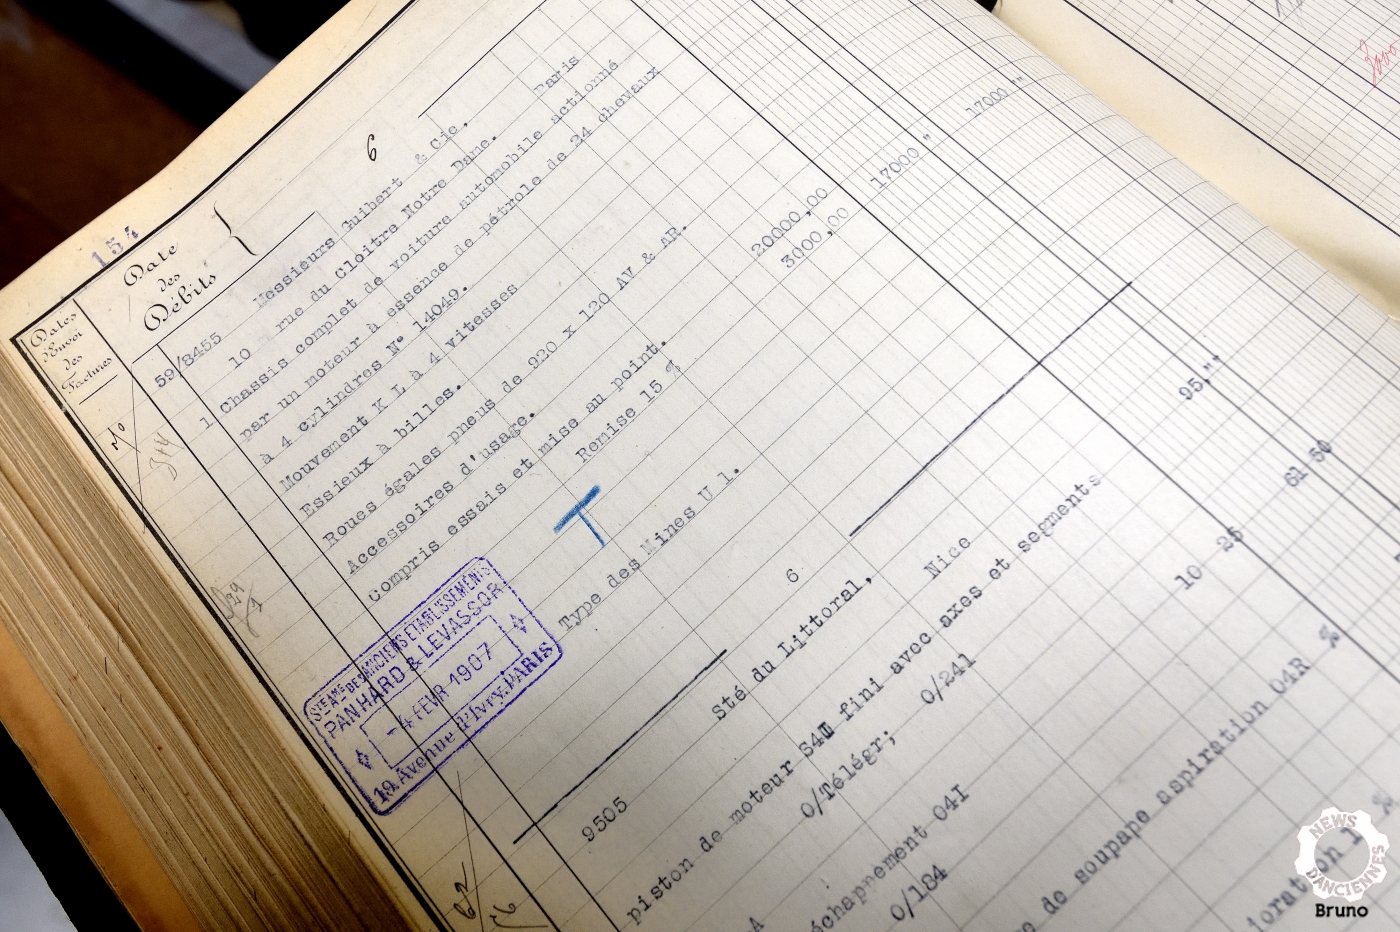 154
6
Dates
d'Envoi
des
Factures
Date
des
Débits
59/8455 Messieurs Guibert & Cie. Paris
10 rue du Cloitre Notre Dame.
1 Chassis complet de voiture automobile actionné
par un moteur à essence de pétrole de 24 chevaux
à 4 cylindres N° 14049.
Mouvement K L à 4 vitesses
Essieux à billes.
Roues égales pneus de 920 x 120 AV & AR.
Accessoires d'usage. 20000,00
compris essais et mise au point. 3000,00
Remise 15 % 17000 " 17000 "
T
Type des Mines U 1.
STÉ AME DES ANCIENS ETABLISSEMENTS
PANHARD & LEVASSOR
-4 FEVR 1907
19. Avenue d'Ivry. PARIS
6
9505 Sté du Littoral, Nice
piston de moteur S4M fini avec axes et segments 95,"
O/Télégr; O/241
échappement 04I 10 25 61 50
O/184
de soupape aspiration 04R %
NEWS
D'ANCIENNES
Bruno